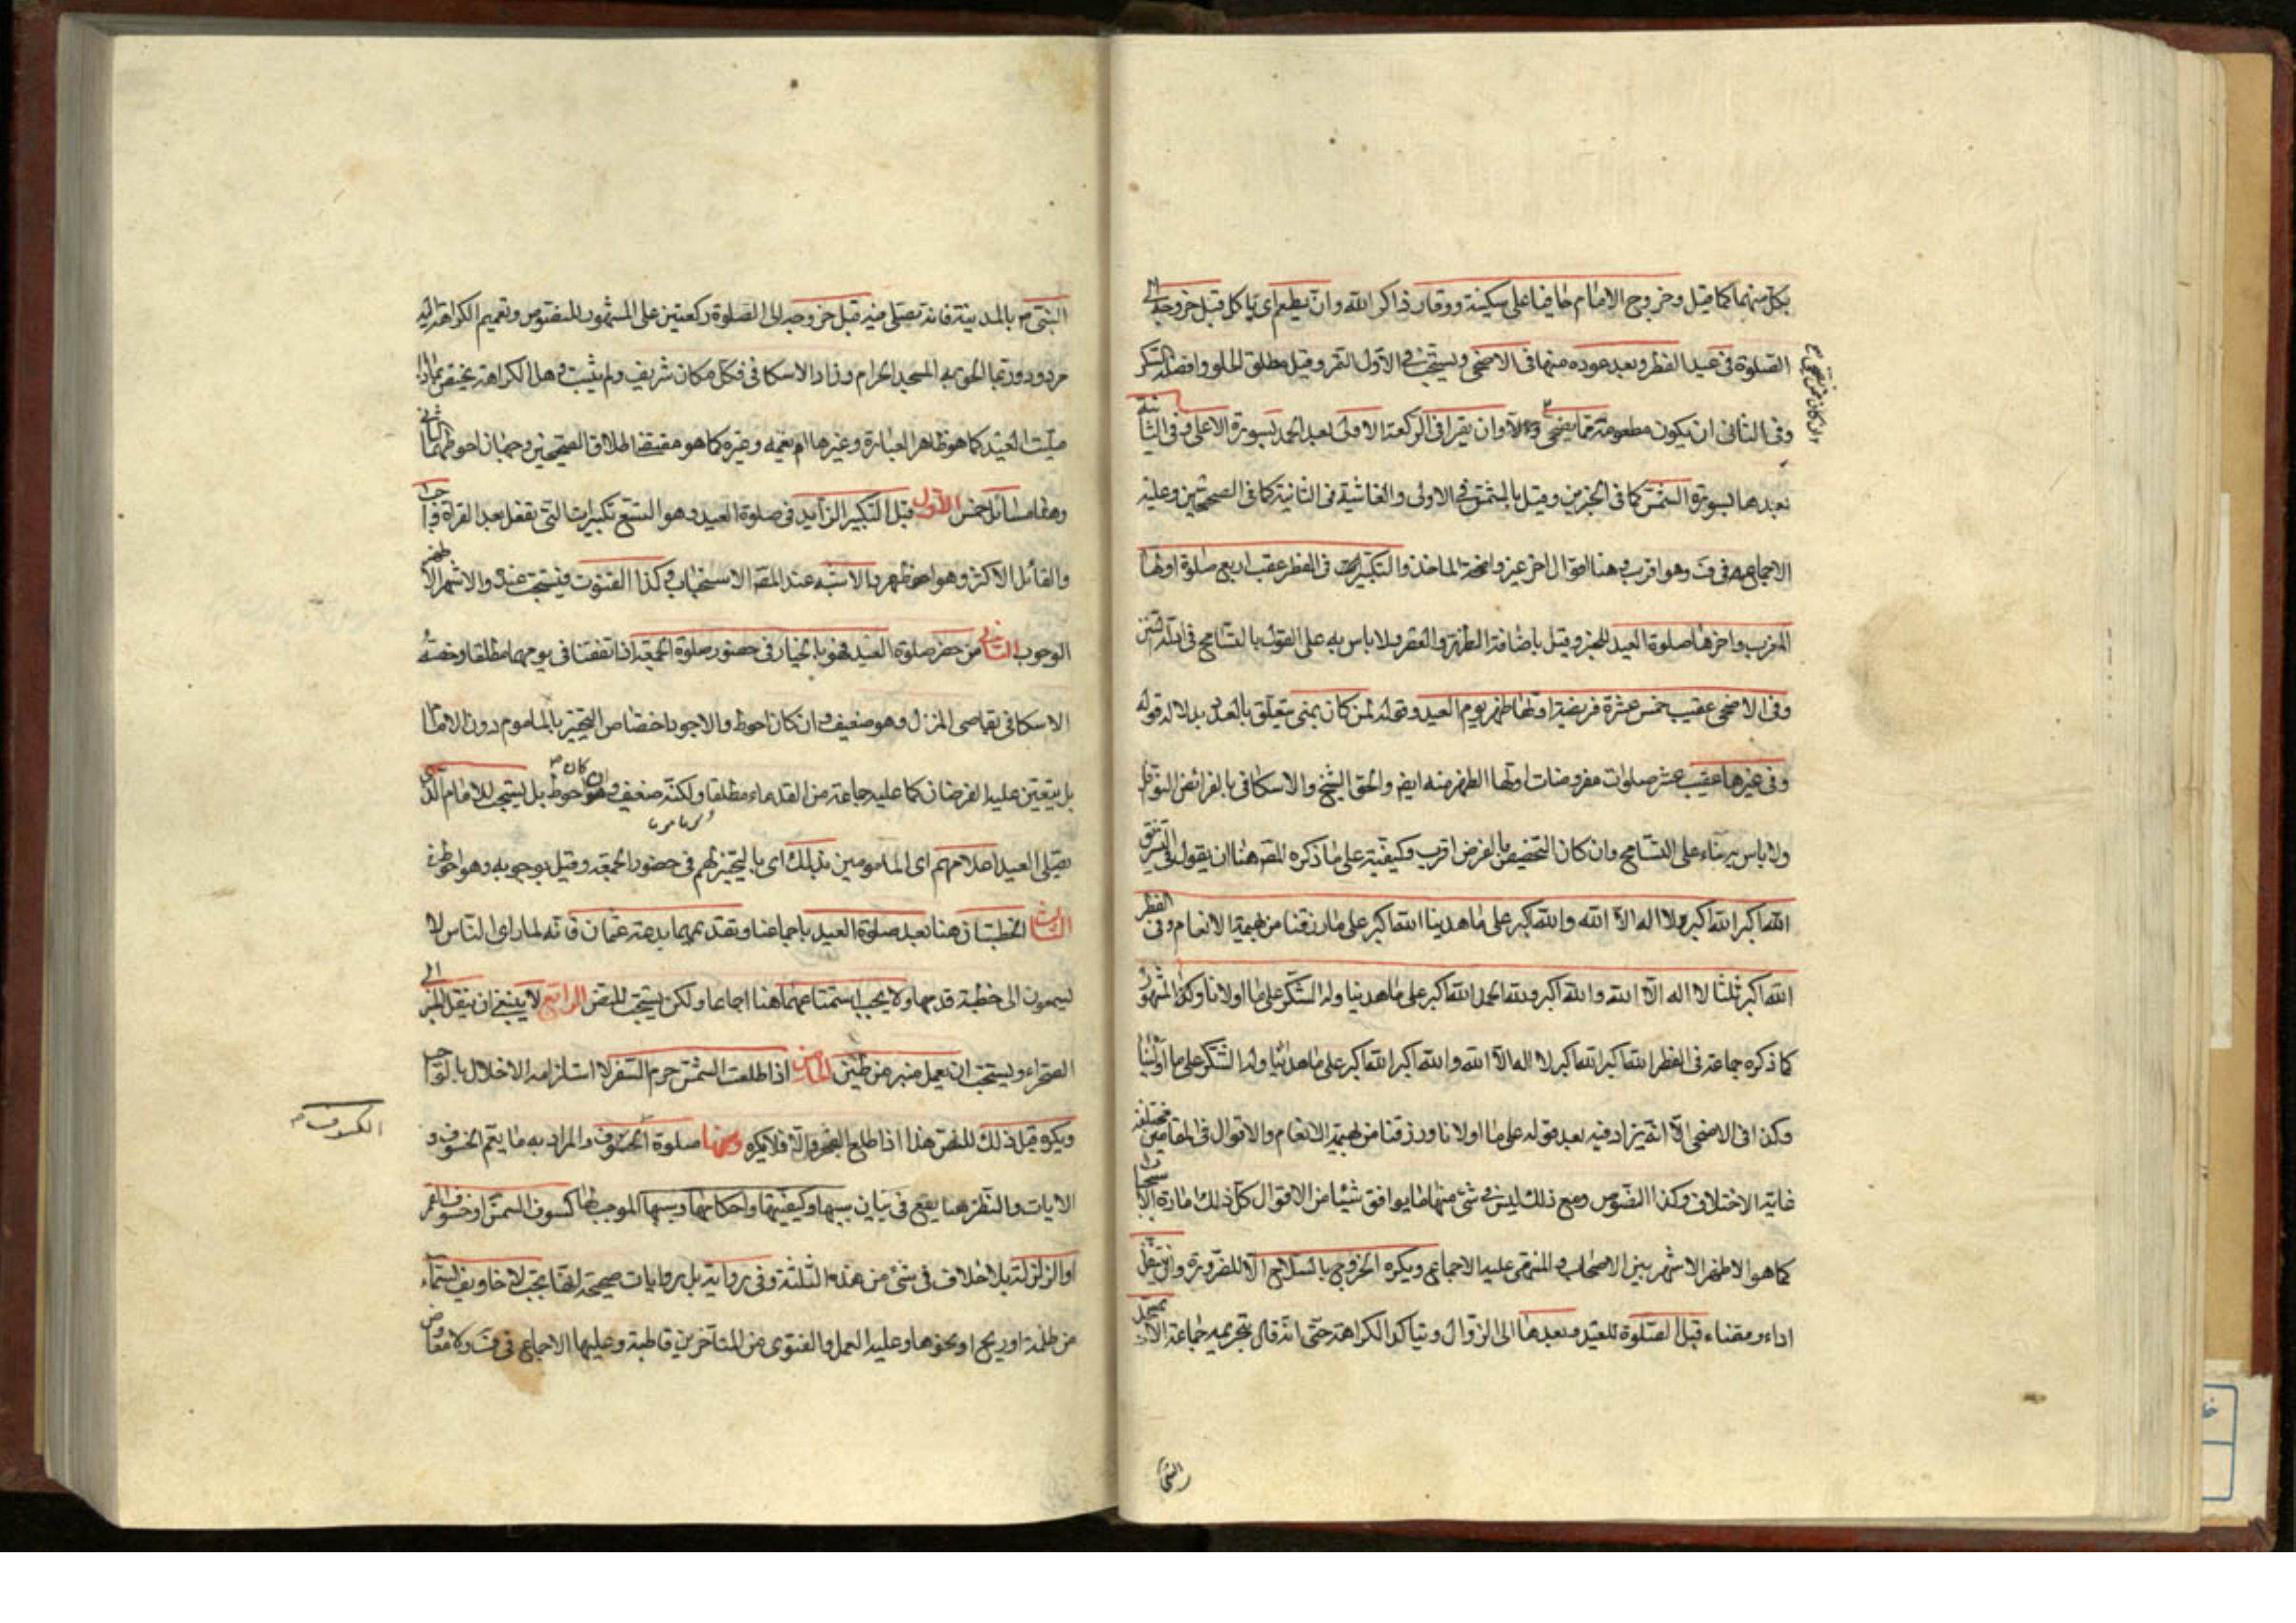 بكل منهما كما قيل وخروج الامام حافيا على سكينة ووقار ذاكر الله وان يطعم اى ياكل قبل خروجه الى
الصلوة فى عيد الفطر وبعد عوده منها فى الاضحى ويستحب فى الاول التمر وقيل مطلق الحلو وافضله السكر
وفى الثانى ان يكون مطعومه مما يضحى به وان يقرا فى الركعة الاولى بعد الحمد بسورة الاعلى وفى الثانية
بعدها بسورة الشمس كما فى الخبرين وقيل بالشمس فى الاولى والغاشية فى الثانية كما فى الصحيحين وعليه
الاجماع فى ف وهو اقرب وهنا اقوال اخر غير واضحة الماخذ والتكبير فى الفطر عقيب اربع صلوة اولها
المغرب واخرها صلوة العيد للخبر وقيل باضافة الظهر والعصر ولا باس به على القول بالتسامح فى ادلة السنن
وفى الاضحى عقيب خمس عشرة فريضة اولها ظهر يوم العيد وقوله لمن كان بمنى يتعلق بالعدد بدلالة قوله
وفى غيرها عقيب عشر صلوات مفروضات اولها الظهر منه ايضا والحق الشيخ والاسكافى بالفرائض النوافل
ولا باس به بناء على التسامح وان كان التخصيص بالفرض اقرب وكيفيته على ما ذكره المصـ هنا ان يقول فى
الله اكبر الله اكبر ولا اله الا الله والله اكبر على ما هدينا الله اكبر على ما رزقنا من بهيمة الانعام وفى الفطر
الله اكبر ثلثا لا اله الا الله والله اكبر ولله الحمد الله اكبر على ما هدينا وله الشكر على ما اولانا وكون المشهور
كما ذكره جماعة فى الفطر الله اكبر الله اكبر لا اله الا الله والله اكبر الله اكبر على ما هدينا وله الشكر على ما اولينا
وكذا فى الاضحى الا انه يزاد فيه بعد قوله على ما اولانا ورزقنا من بهيمة الانعام والاقوال فى المقامين مختلفة
غاية الاختلاف وكذا النصوص ومع ذلك ليس فى شئ منها ما يوافق شيئا من الاقوال كل ذلك امارة الاستحباب
كما هو الاظهر الاشهر بين الاصحاب عليه الاجماع ويكره الخروج بالسلاح الا للضرورة وان يتنفل
اداء وقضاء قبل الصلوة للعيد وبعدها الى الزوال ويتاكد الكراهة حتى انه قال بتحريمه جماعة الا بمسجد
النبى
النبى ص بالمدينة فانه يصلى فيه قبل خروجه الى الصلوة ركعتين على المشهور للنصوص وتعميم الكراهة اليه
مردود وربما الحق به المسجد الحرام وزاد الاسكافى فكل مكان شريف ولم يثبت وهل الكراهة يختص بما اذا
صليت العيد كما هو ظاهر العبارة وغيرها ام يعمه وغيره كما هو مقتضى اطلاق الصحيحين وجهان احوطهما الثانى
وهنا مسائل خمس الاول قيل التكبير الزائد فى صلوة العيد وهو التسع تكبيرات التى تفعل بعد القراة واجب
والقائل الاكثر وهو اظهر والاشبه عند المصـ الاستحباب وكذا القنوت فيستحب عنده والاشهر الاظهر
الوجوب الثانى من حضر صلوة العيد فهو بالخيار فى حضور صلوة الجمعة اذا اتفقتا فى يومهما مطلقا وخصه
الاسكافى بقاصى المنزل وهو ضعيف وان كان احوط والاجود اختصاص التخيير بالماموم دون الامام
بل يتعين عليه الفرضان كما عليه جماعة من القدماء مطلقا ولكنه ضعيف وان كان احوط بل يستحب للامام الذى
يصلى العيد اعلامهم اى المامومين بذلك اى بالتخيير لهم فى حضور الجمعة وقيل بوجوبه وهو احوط
الثالث الخطبتان هنا بعد صلوة العيد باجماعنا وتقديمهما بدعة عثمان فانه لما راى الناس لا
يسمعون الى خطبة قدمها ولا يجب استماعهما هنا اجماعا ولكن يستحب للنص الرابع لا ينبغى ان ينقل المنبر الى
الصحراء ويستحب ان يعمل منبر من طين الخامس اذا طلعت الشمس حرم السفر لاستلزامه الاخلال بالواجب
ويكره قبل ذلك للنص هذا اذا طلع الفجر والا فلا يكره ومنها صلوة الكسوف والمراد به ما يعم الخسوف و
الكسوف
الايات والنظر هنا يقع فى بيان سببها وكيفيتها واحكامها وسببها الموجب لها كسوف الشمس او خسوف القمر
او الزلزلة بلا خلاف فى شئ من هذه الثلثة وفى رواية بل روايات صحيحة انها تجب لاخاويف السماء
من ظلمة او ريح او نحوها وعليه العمل والفتوى من المتاخرين قاطبة وعليها الاجماع فى ف ولا معارض